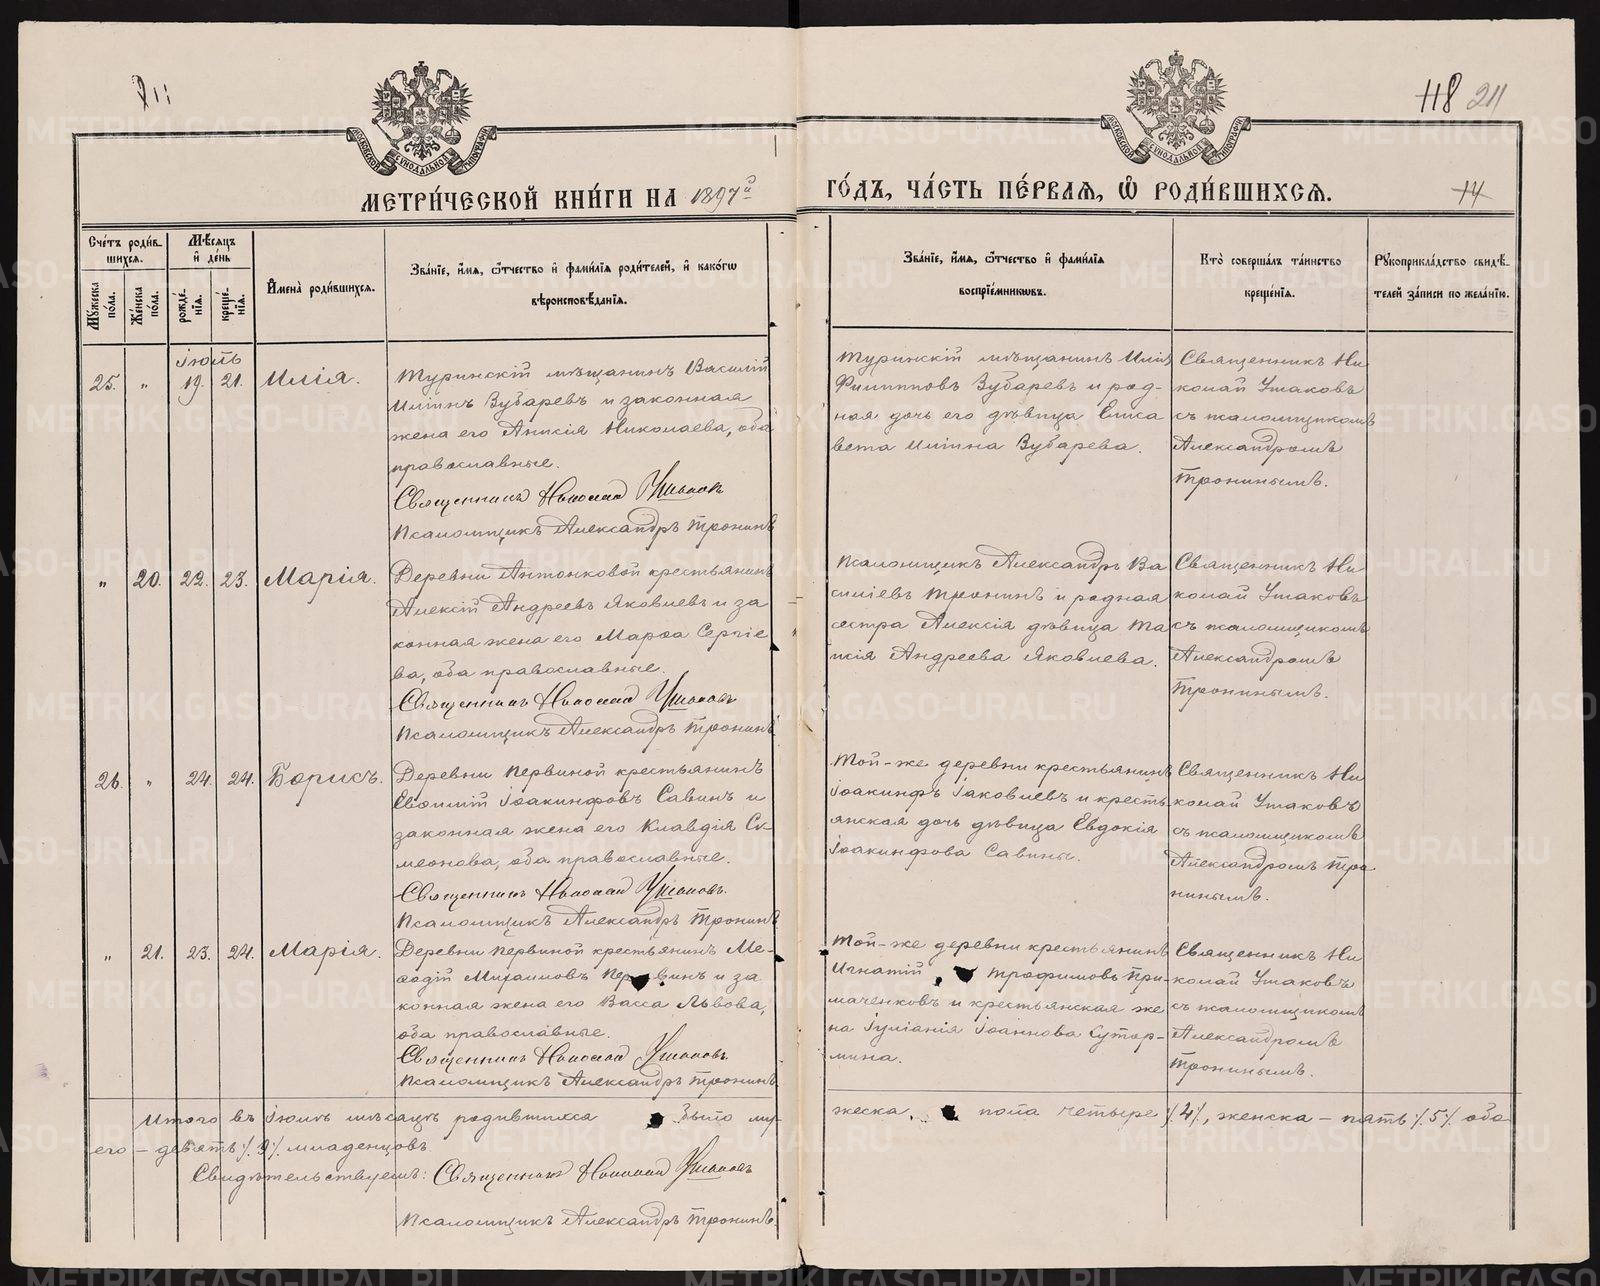 118 211
МЕТРИ́ЧЕСКОЙ КНИ́ГИ НА 1897й
ГО́ДЪ, ЧА́СТЬ ПЕ́РВАЯ, Ѽ РОДИ́ВШИХСЯ.
14
МОСКОВСКОЙ СѴНОДАЛЬНОЙ ТИПОГРАФІИ
МОСКОВСКОЙ СѴНОДАЛЬНОЙ ТИПОГРАФІИ
Счетъ родив-
шихся.
Мужеска пола.
Женска пола.
Мѣсяцъ
и день
рожде-
нія.
креще-
нія.
Имена родившихся.
Званіе, имя, отчество и фамилія родителей, и какого
вѣроисповѣданія.
Званіе, имя, отчество и фамилія
воспріемниковъ.
Кто совершалъ таинство
крещенія.
Рукоприкладство свидѣ-
телей записи по желанію.
Іюль
25. " 19. 21. Илія.
Туринскій мѣщанинъ Василій
Ильинъ Зубаревъ и законная
жена его Анисія Николаева, оба
православные.
Священникъ Николай Ушаковъ
Псаломщикъ Александръ Тронинъ
Туринскій мѣщанинъ Илія
Филипповъ Зубаревъ и род-
ная дочь его дѣвица Елиса
вета Ильина Зубарева.
Священникъ Ни
колай Ушаковъ
съ псаломщикомъ
Александромъ
Тронинымъ.
" 20. 22. 23. Марія.
Деревни Антонковой крестьянинъ
Алексій Андреевъ Яковлевъ и за
конная жена его Марѳа Сергіе
ва, оба православные.
Священникъ Николай Ушаковъ
Псаломщикъ Александръ Тронинъ
Псаломщикъ Александръ Ва
силіевъ Тронинъ и родная
сестра Алексія дѣвица Та
исія Андреева Яковлева.
Священникъ Ни
колай Ушаковъ
съ псаломщикомъ
Александромъ
Тронинымъ.
26. " 24. 24. Борисъ.
Деревни Первиной крестьянинъ
Евѳимій Іоакинфовъ Савинъ и
законная жена его Клавдія Си-
меонова, оба православные.
Священникъ Николай Ушаковъ.
Псаломщикъ Александръ Тронинъ
Той-же деревни крестьянинъ
Іоакинфъ Іаковлевъ и кресть
янская дочь дѣвица Евдокія
Іоакинфова Савины.
Священникъ Ни
колай Ушаковъ
съ псаломщикомъ
Александромъ Тро
нинымъ.
" 21. 23. 24. Марія.
Деревни Первиной крестьянинъ Ме-
ѳодій Михаиловъ Первинъ и за
конная жена его Васса Львова,
оба православные.
Священникъ Николай Ушаковъ
Псаломщикъ Александръ Тронинъ
Той-же деревни крестьянинъ
Игнатій Трофимовъ При-
маченковъ и крестьянская же
на Іуліанія Іоаннова Сутор-
мина.
Священникъ Ни
колай Ушаковъ
съ псаломщикомъ
Александромъ
Тронинымъ.
Итого въ Іюлѣ мѣсяцѣ родившихся было му-
жеска пола четыре ⁒4⁒, женска – пять ⁒5⁒ обо
его – девять ⁒9⁒ младенцовъ.
Свидѣтельствуемъ: Священникъ Николай Ушаковъ
Псаломщикъ Александръ Тронинъ